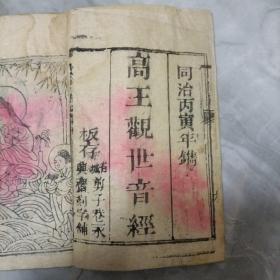 同治丙寅年鐫
高王觀世音經
板存
省城
剪子巷永
興齋刻字鋪